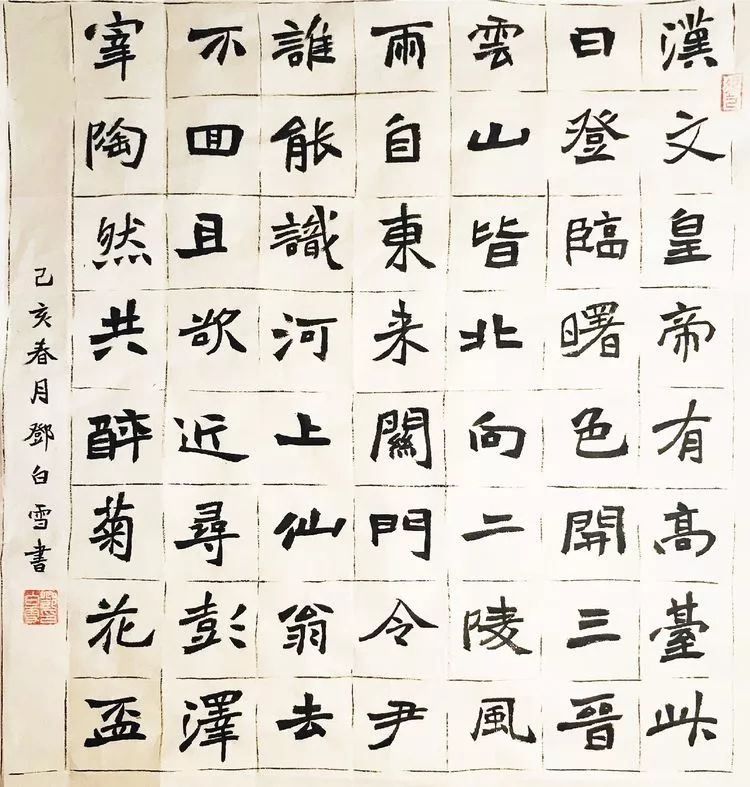 漢文皇帝有高臺此
日登臨曙色開三晉
雲山皆北向二陵風
雨自東来關門令尹
誰能識河上仙翁去
不回且欲近尋彭澤
宰陶然共醉菊花盃
己亥春月鄧白雪書